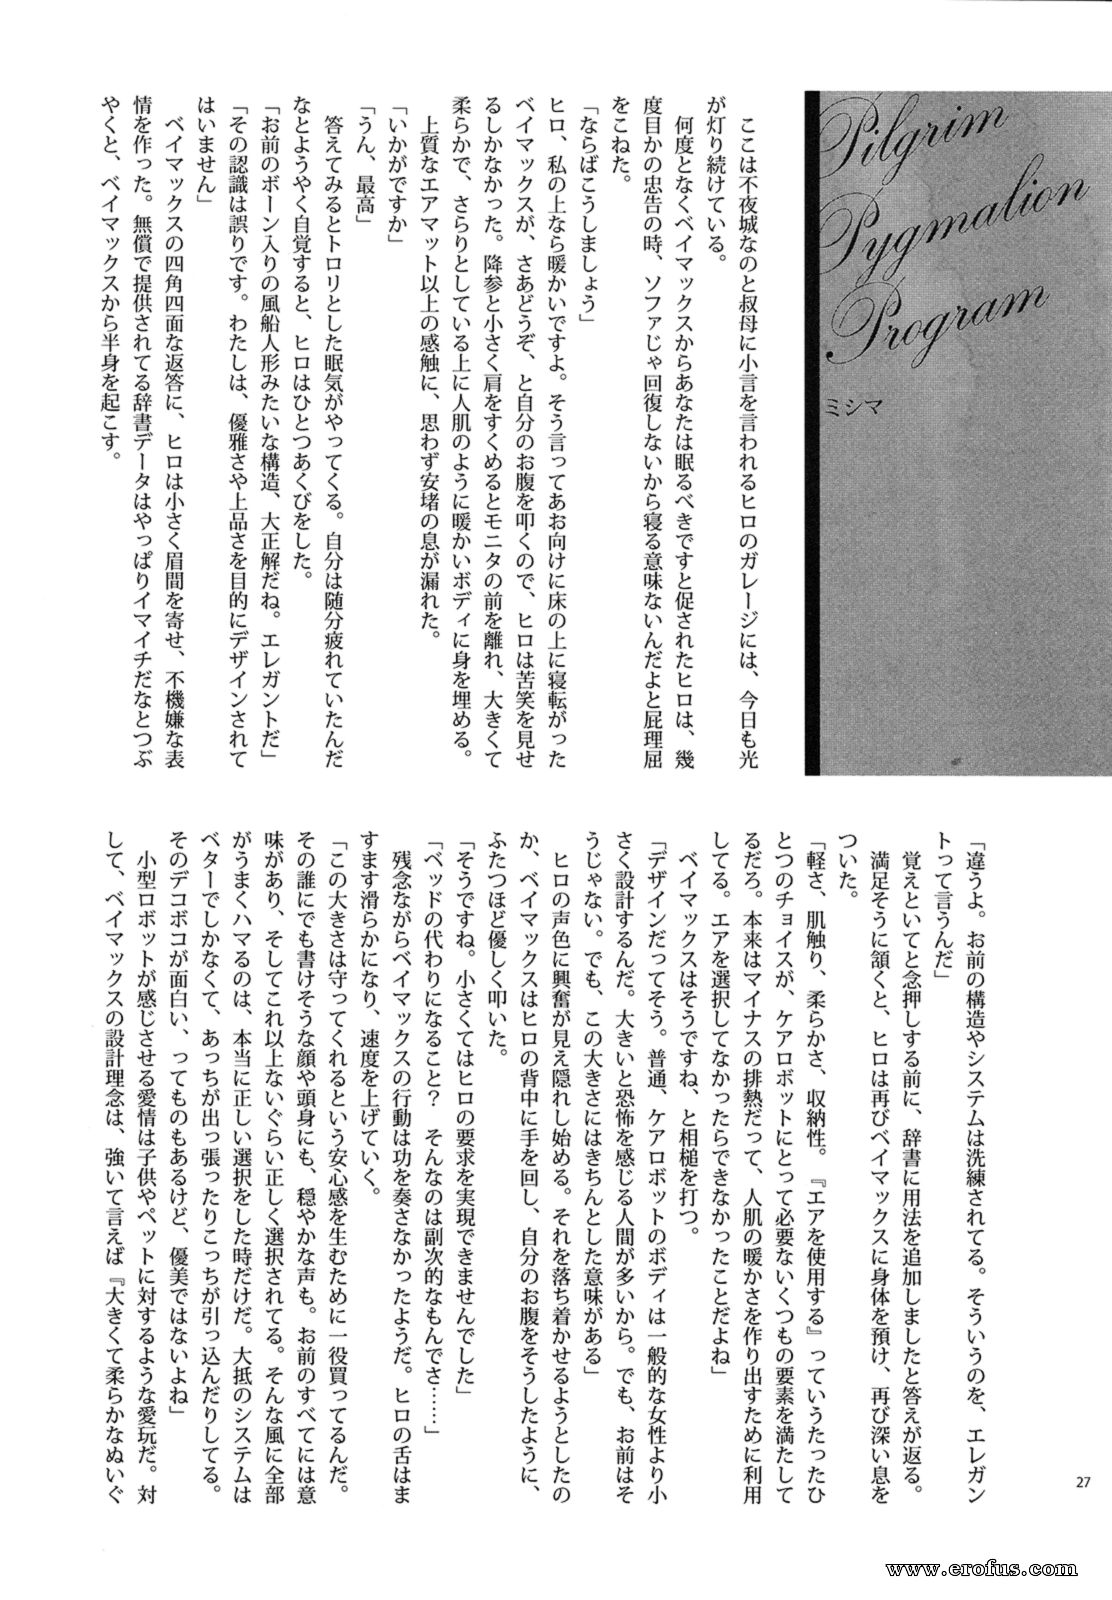 Pilgrim
Pygmalion
Program
ミシマ
　ここは不夜城なのと叔母に小言を言われるヒロのガレージには、今日も光
が灯り続けている。
　何度となくベイマックスからあなたは眠るべきですと促されたヒロは、幾
度目かの忠告の時、ソファじゃ回復しないから寝る意味ないんだよと屁理屈
をこねた。
「ならばこうしましょう」
ヒロ、私の上なら暖かいですよ。そう言ってあお向けに床の上に寝転がった
ベイマックスが、さあどうぞ、と自分のお腹を叩くので、ヒロは苦笑を見せ
るしかなかった。降参と小さく肩をすくめるとモニタの前を離れ、大きくて
柔らかで、さらりとしている上に人肌のように暖かいボディに身を埋める。
　上質なエアマット以上の感触に、思わず安堵の息が漏れた。
「いかがですか」
「うん、最高」
　答えてみるとトロリとした眠気がやってくる。自分は随分疲れていたんだ
なとようやく自覚すると、ヒロはひとつあくびをした。
「お前のボーン入りの風船人形みたいな構造、大正解だね。エレガントだ」
「その認識は誤りです。わたしは、優雅さや上品さを目的にデザインされて
はいません」
　ベイマックスの四角四面な返答に、ヒロは小さく眉間を寄せ、不機嫌な表
情を作った。無償で提供されてる辞書データはやっぱりイマイチだなとつぶ
やくと、ベイマックスから半身を起こす。
「違うよ。お前の構造やシステムは洗練されてる。そういうのを、エレガン
トって言うんだ」
　覚えといてと念押しする前に、辞書に用法を追加しましたと答えが返る。
　満足そうに頷くと、ヒロは再びベイマックスに身体を預け、再び深い息を
ついた。
「軽さ、肌触り、柔らかさ、収納性。『エアを使用する』っていうたったひ
とつのチョイスが、ケアロボットにとって必要ないくつもの要素を満たして
るだろ。本来はマイナスの排熱だって、人肌の暖かさを作り出すために利用
してる。エアを選択してなかったらできなかったことだよね」
　ベイマックスはそうですね、と相槌を打つ。
「デザインだってそう。普通、ケアロボットのボディは一般的な女性より小
さく設計するんだ。大きいと恐怖を感じる人間が多いから。でも、お前はそ
うじゃない。でも、この大きさにはきちんとした意味がある」
　ヒロの声色に興奮が見え隠れし始める。それを落ち着かせるようとしたの
か、ベイマックスはヒロの背中に手を回し、自分のお腹をそうしたように、
ふたつほど優しく叩いた。
「そうですね。小さくてはヒロの要求を実現できませんでした」
「ベッドの代わりになること？　そんなのは副次的なもんでさ……」
　残念ながらベイマックスの行動は功を奏さなかったようだ。ヒロの舌はま
すます滑らかになり、速度を上げていく。
「この大きさは守ってくれるという安心感を生むために一役買ってるんだ。
その誰にでも書けそうな顔や頭身にも、穏やかな声も。お前のすべてには意
味があり、そしてこれ以上ないぐらい正しく選択されてる。そんな風に全部
がうまくハマるのは、本当に正しい選択をした時だけだ。大抵のシステムは
ベターでしかなくて、あっちが出っ張ったりこっちが引っ込んだりしてる。
そのデコボコが面白い、ってものもあるけど、優美ではないよね」
　小型ロボットが感じさせる愛情は子供やペットに対するような愛玩だ。対
して、ベイマックスの設計理念は、強いて言えば『大きくて柔らかなぬいぐ
27
www.erofus.com